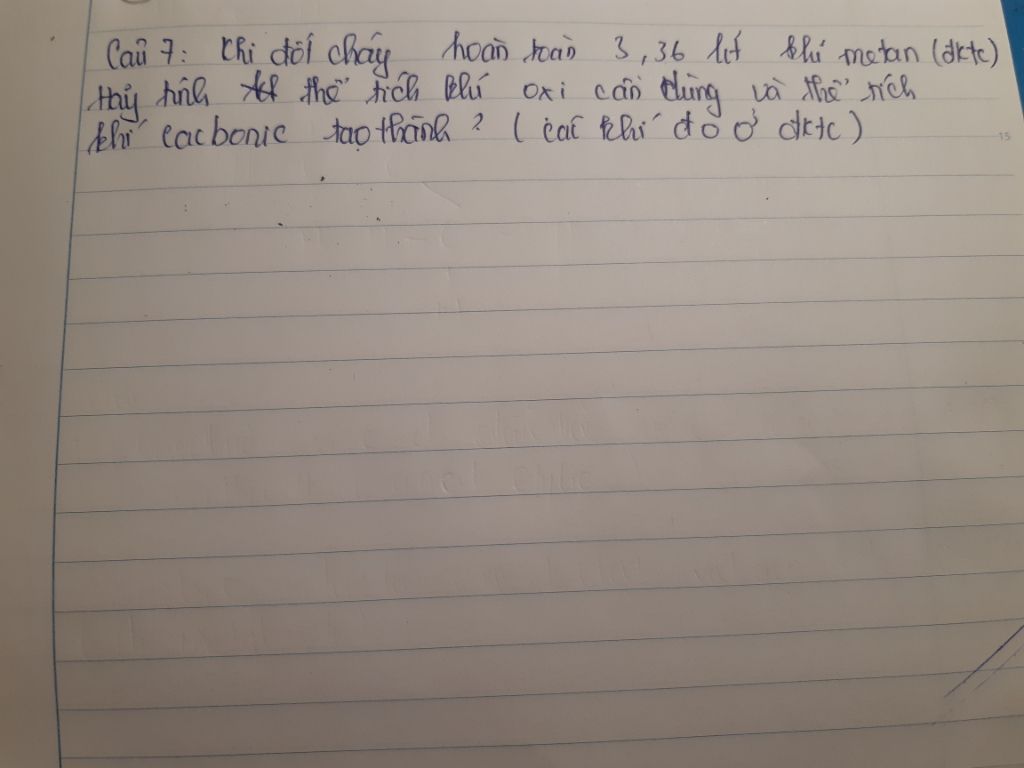 Câu 7: Khi đốt cháy hoàn toàn 3,36 lít khí metan (đktc)
Hãy tính thể tích khí oxi cần dùng và thể tích
khí cacbonic tạo thành? (các khí đo ở đktc)
15